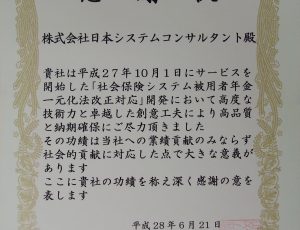 株式会社日本システムコンサルタント殿
貴社は平成27年10月1日にサービスを
開始した「社会保険システム被用者年金
一元化法改正対応」開発において高度な
技術力と卓越した創意工夫により高品質
と納期確保にご尽力頂きました
その功績は当社への業績貢献のみならず
社会的貢献に対応した点で大きな意義が
あります
ここに貴社の功績を称え深く感謝の意を
表します
平成28年6月21日